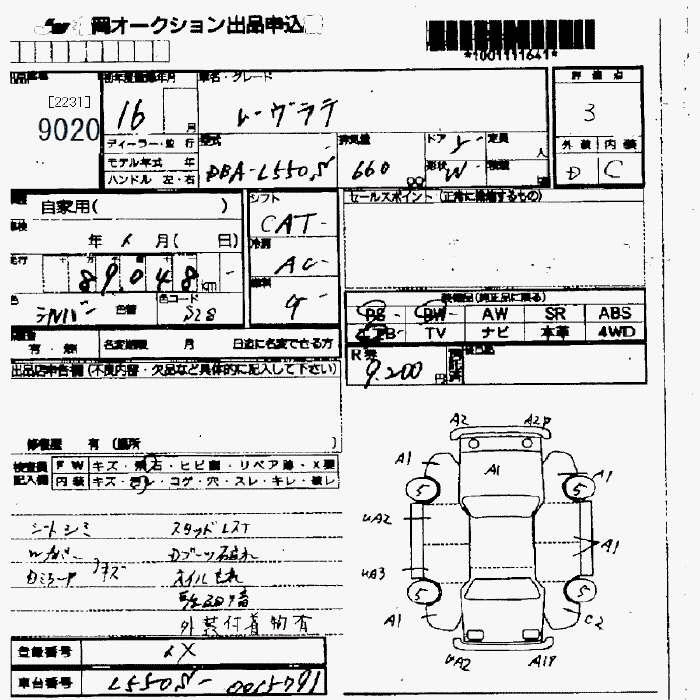 岡オークション出品申込
*1001111641*
初年度登録年月 車名・グレード 評価点
[2231]
9020
16 月 レ-ヴラテ 3
ディーラー・並行 型式 排気量 ドア 定員 外装 内装
モデル年式 年 DBA-L550S 660 形状 W 人 D C
ハンドル 左・右
シフト セールスポイント (正常に稼働するもの)
自家用( ) CAT
年 月( 日) 冷房
走行 89048 km AC
色 シルバー 色替 色コード S28
装備品(純正品に限る)
PS PW AW SR ABS
AB TV ナビ 本革 4WD
有・無 名変期限 月 日迄に名変できる方
R券 9.200 円
出品店申告欄(不良内容・欠品など具体的に記入して下さい)
修復歴 有(箇所 )
検査員 FW キズ・飛石・ヒビ割・リペア跡・X要
記入欄 内装 キズ・汚レ・コゲ・穴・スレ・キレ・破レ
シートシミ スタッドレスT
Dブーツ切れ
Dミラー キズ オイルもれ
外装付着物有
A2 A2P
A1 A1 A1
5 5
UA2 A1
UA3
5 5
A1 C2
UA2 A1P
登録番号 X
車台番号 L550S- 0015791